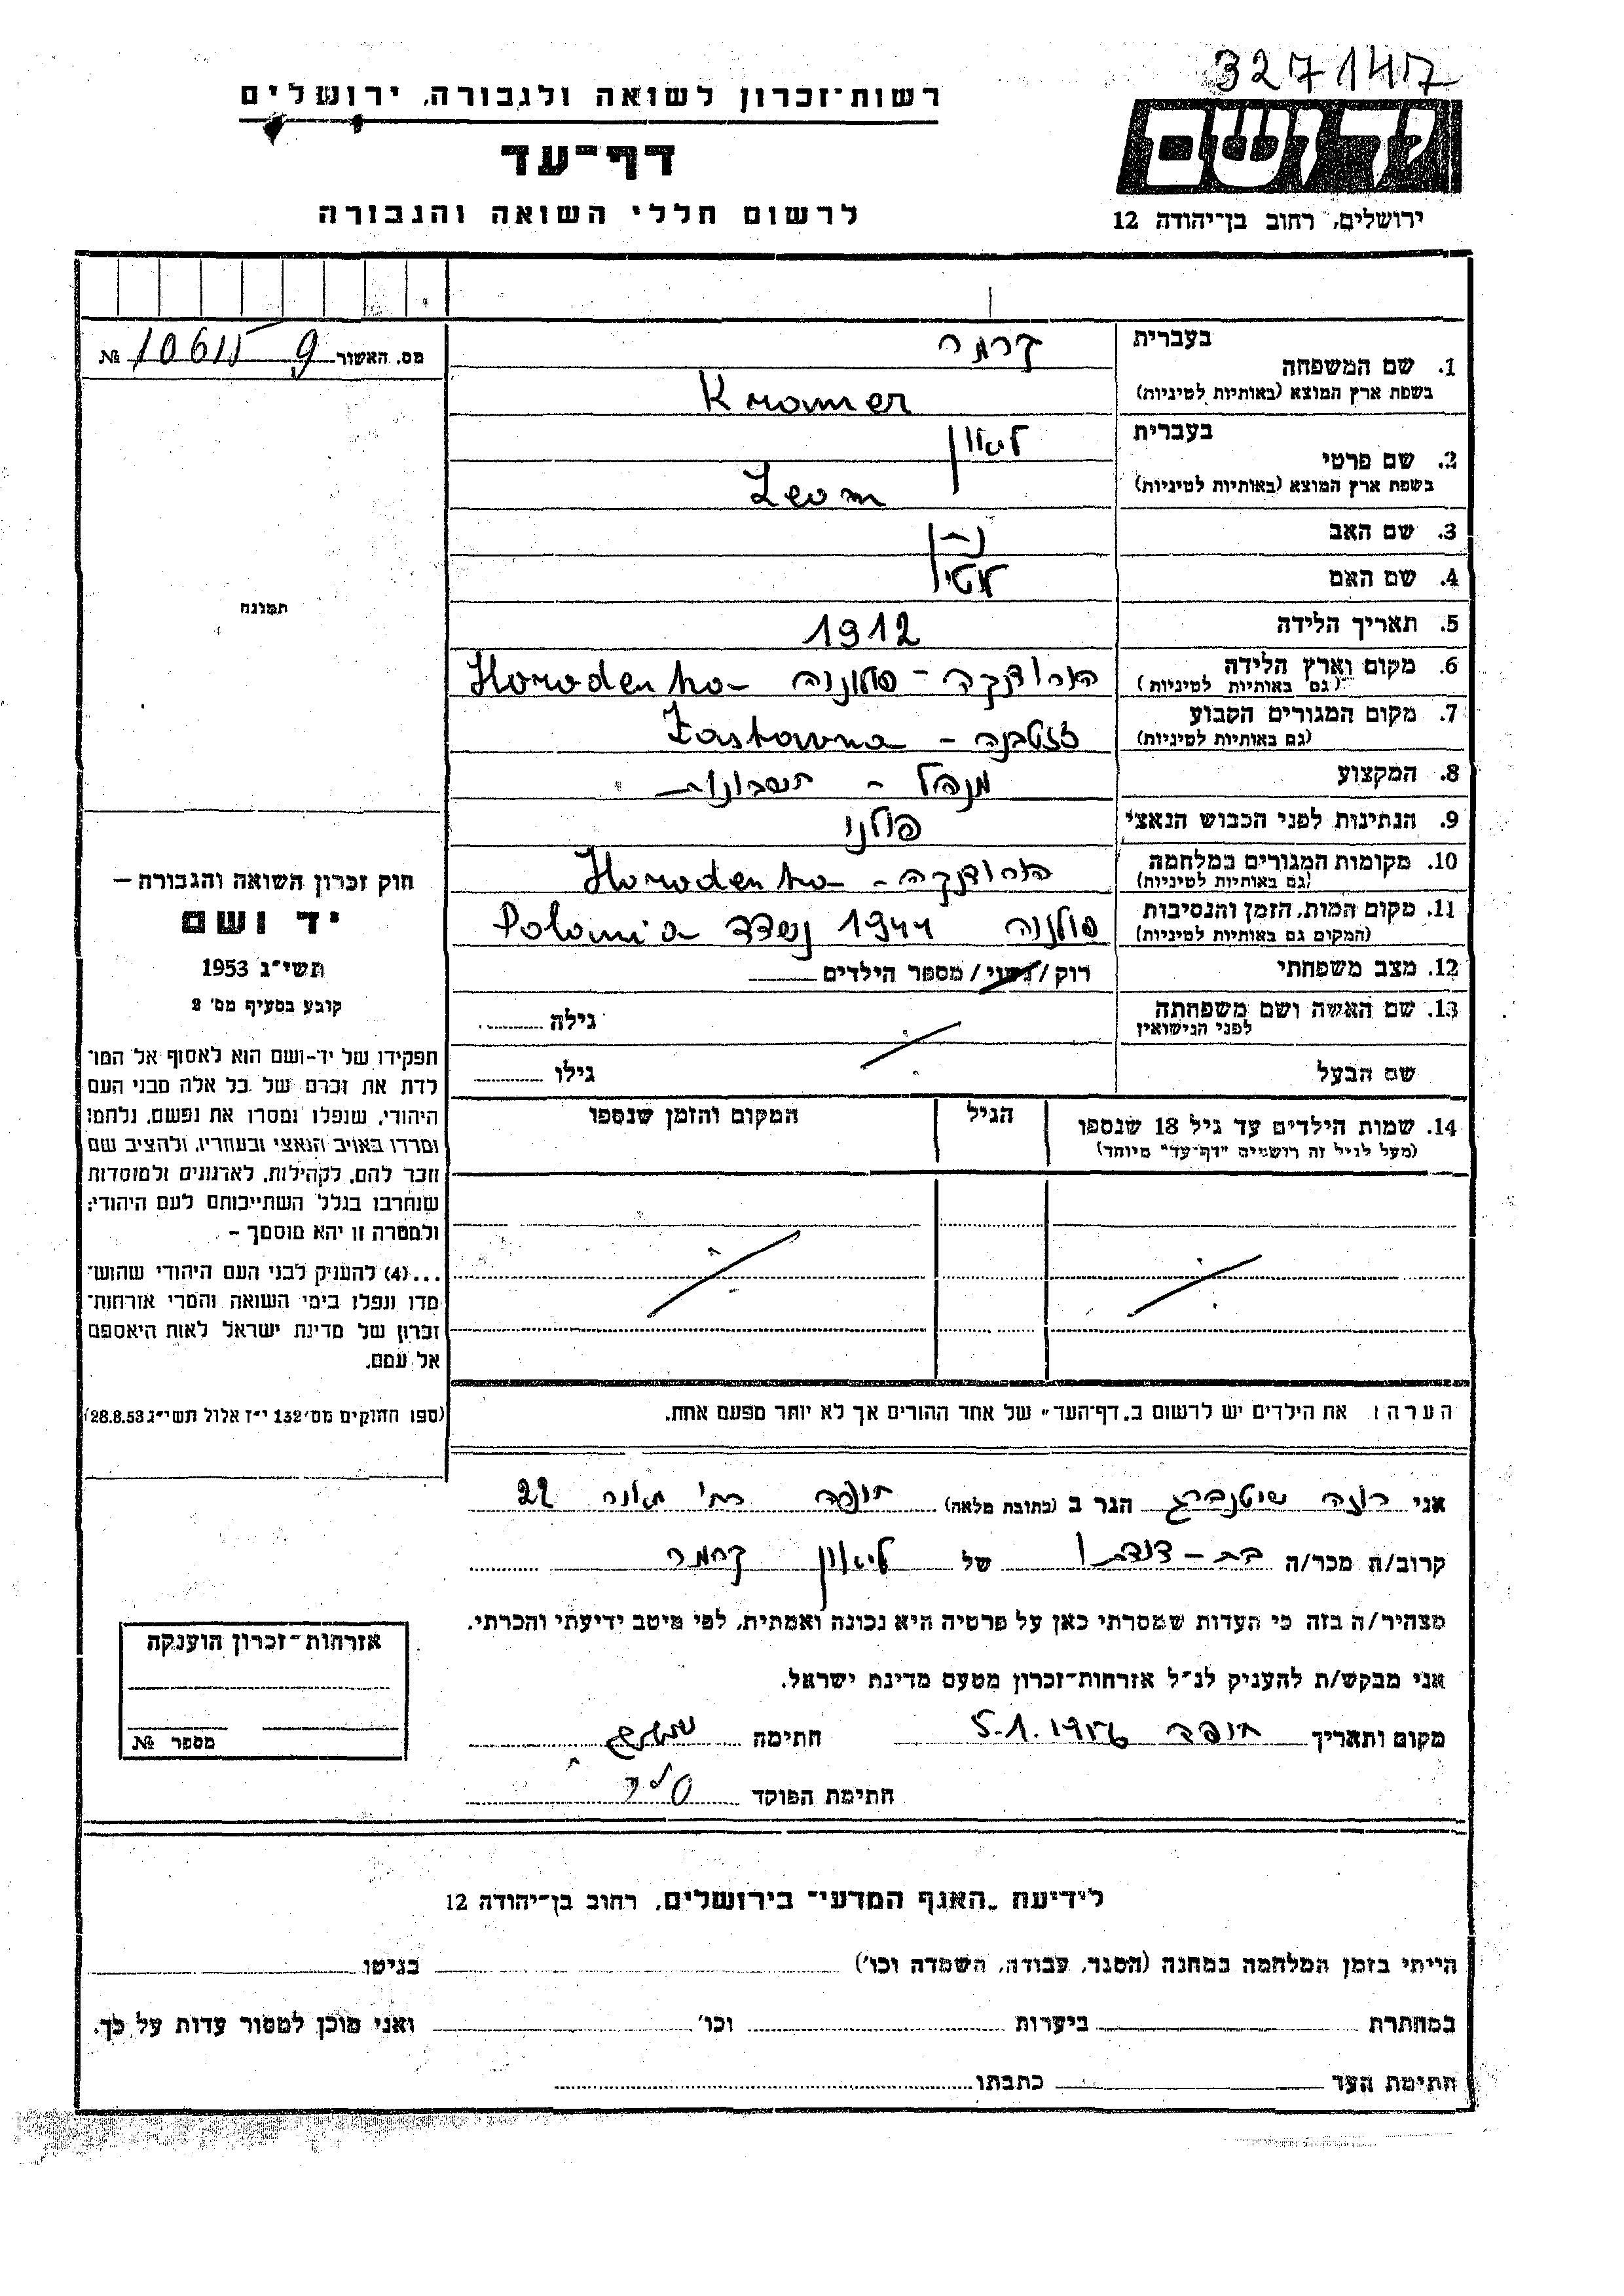 327147
רשות־זכרון לשואה ולגבורה, ירושלים
דף־עד
לרשום חללי השואה והגבורה
יד ושם
ירושלים, רחוב בן־יהודה 12
מס. האשור № 10611 9
בעברית קרמר
1. שם המשפחה
בשפת ארץ המוצא (באותיות לטיניות) Kramer
בעברית ליאון
2. שם פרטי
בשפת ארץ המוצא (באותיות לטיניות) Leon
3. שם האב נתן
4. שם האם
5. תאריך הלידה 1912
6. מקום וארץ הלידה (גם באותיות לטיניות) הורודנקה - פולניה Horodenka
7. מקום המגורים הקבוע (גם באותיות לטיניות) זסטבנה - Zastawna
8. המקצוע מנהל - חשבונות
9. הנתינות לפני הכבוש הנאצי פולני
10. מקומות המגורים במלחמה (גם באותיות לטיניות) הורודנקה - Horodenka
11. מקום המות, הזמן והנסיבות (המקום גם באותיות לטיניות) פולניה 1944 Polania
12. מצב משפחתי רוק / נשוי / מספר הילדים
13. שם האשה ושם משפחתה לפני הנישואין גילה
שם הבעל גילו
14. שמות הילדים עד גיל 18 שנספו הגיל המקום והזמן שנספו
(מעל לגיל זה רושמים "דף־עד" מיוחד)
הערה: את הילדים יש לרשום ב„דף־העד" של אחד ההורים אך לא יותר מפעם אחת.
תמונה
חוק זכרון השואה והגבורה –
יד ושם
תשי"ג 1953
קובע בסעיף מס' 2
תפקידו של יד-ושם הוא לאסוף אל המו־
לדת את זכרם של כל אלה מבני העם
היהודי, שנפלו ומסרו את נפשם, נלחמו
ומרדו באויב הנאצי ובעוזריו, ולהציב שם
וזכר להם, לקהילות, לארגונים ולמוסדות
שנחרבו בגלל השתייכותם לעם היהודי;
ולמטרה זו יהא מוסמך –
...(4) להעניק לבני העם היהודי שהוש־
מדו ונפלו בימי השואה והמרי אזרחות־
זכרון של מדינת ישראל לאות היאספם
אל עמם.
(ספר החוקים מס' 132 י"ז אלול תשי"ג 28.8.53)
אני רוזה שטנברג הגר ב (כתובת מלאה) חיפה רח' 22
קרוב/ה מכר/ה בת - דודתו של ליאון קרמר
מצהיר/ה בזה כי העדות שמסרתי כאן על פרטיה היא נכונה ואמתית, לפי מיטב ידיעתי והכרתי.
אני מבקש/ת להעניק לנ"ל אזרחות־זכרון מטעם מדינת ישראל.
מקום ותאריך חיפה 5.1.1956 חתימה
חתימת הפוקד
אזרחות־זכרון הוענקה
מספר №
לידיעת „האגף המדעי" בירושלים, רחוב בן־יהודה 12
הייתי בזמן המלחמה במחנה (הסגר, עבודה, השמדה וכו') בגיטו
במחתרת ביערות וכו' ואני מוכן למסור עדות על כך.
חתימת העד כתבתו